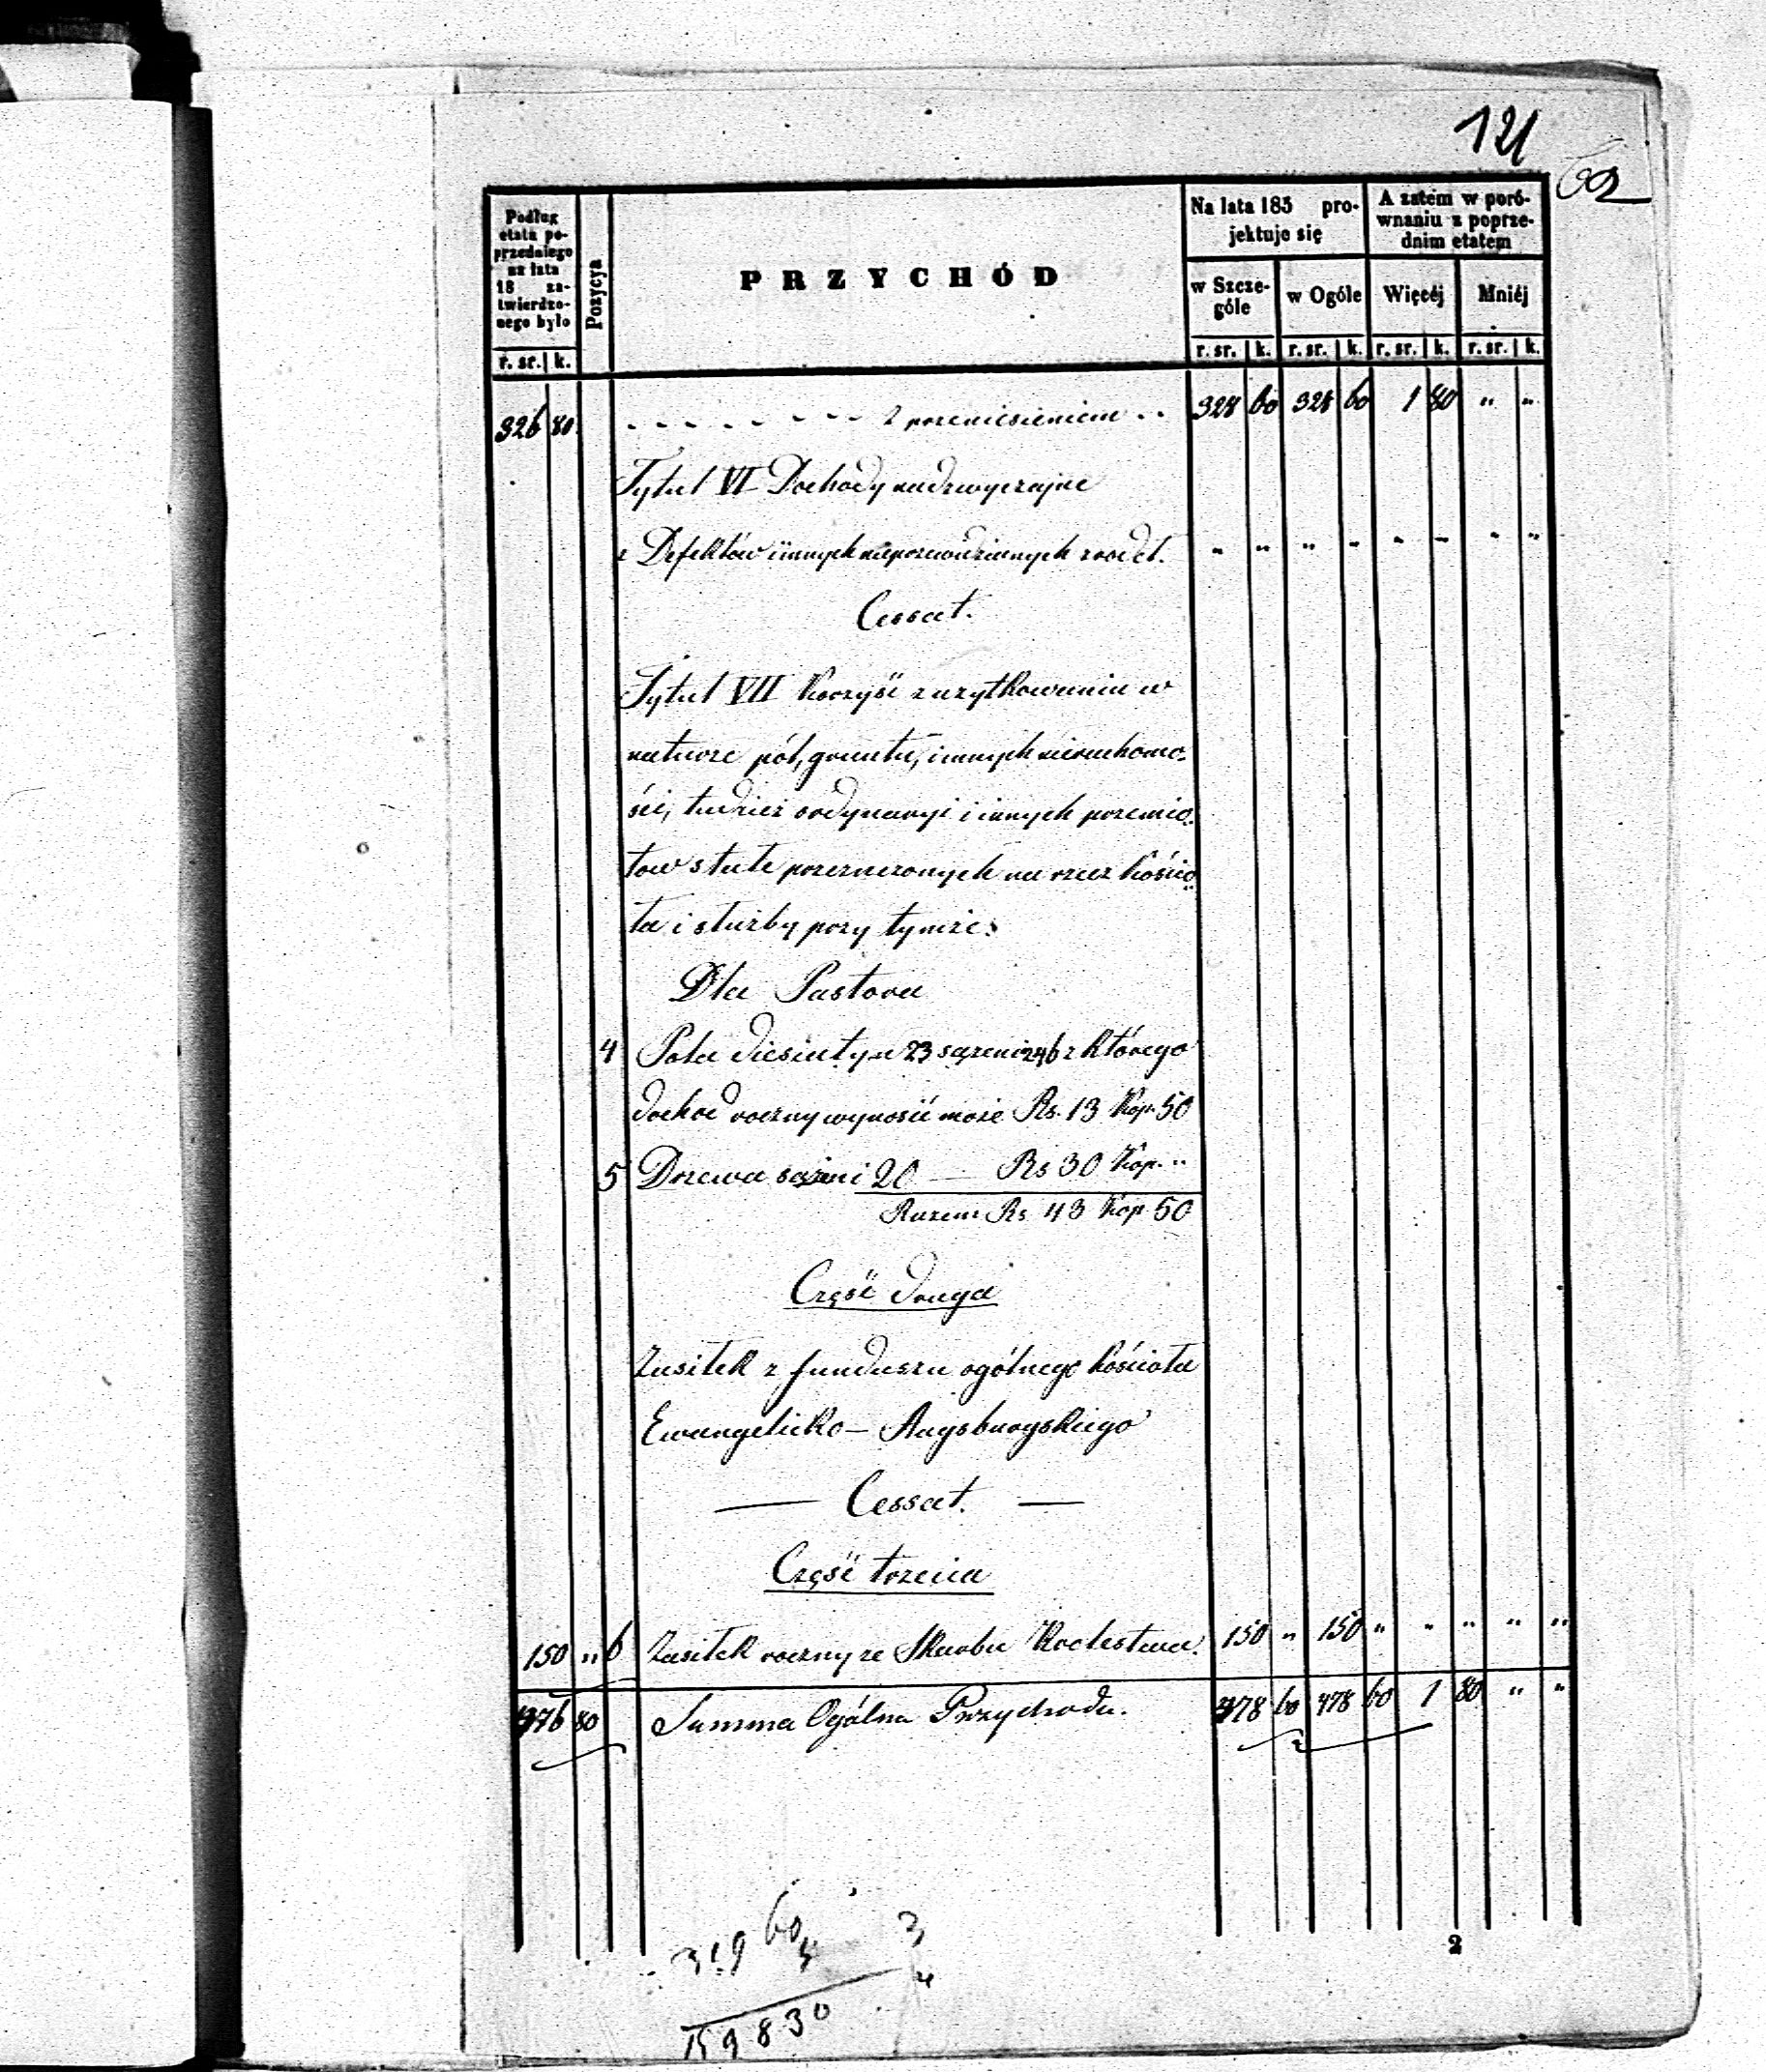 121
62
Podług etatu poprzedniego na lata 18 zatwierdzonego było
Pozycya
PRZYCHÓD
Na lata 185 projektuje się
A zatem w porównaniu z poprzednim etatem
w Szczególe
w Ogóle
Więcéj
Mniéj
r. sr. | k. r. sr. | k. r. sr. | k. r. sr. | k. r. sr. | k.
326 80 - - - - - - - - Z przeniesieniem - - 328 60 328 60 1 80 " "
Tytuł VI Dochody nadzwyczajne
z Defektów i innych nieprzewidzianych zrodeł. " " " " " " " "
Cessat.
Tytuł VII Korzyść z użytkowania w
naturze pól, gruntu, i innych nieruchomo-
ści, tudzież ordynaryi i innych przemio-
tow stale przeznczonych na rzecz kościo-
ła i służby przy tymże:
Dla Pastora
4 Pola diesiatyn 23 sążeni 246 z którego
dochod roczny wynosić może Rs. 13 Kop. 50
5 Drzewa sążeni 20 — Rs 30 Kop. "
Razem Rs 43 Kop 50
Część druga
Zasiłek z funduszu ogólnego kościoła
Ewangelicko - Augsburgskiego
— Cessat. —
Część trzecia
150 " 6 Zasiłek roczny ze Skarbu Krolestwa. 150 " 150 " " " " "
476 80 Summa Ogólna Przychodu. 478 60 478 60 1 80 " "
2
319 60 3
4
159830